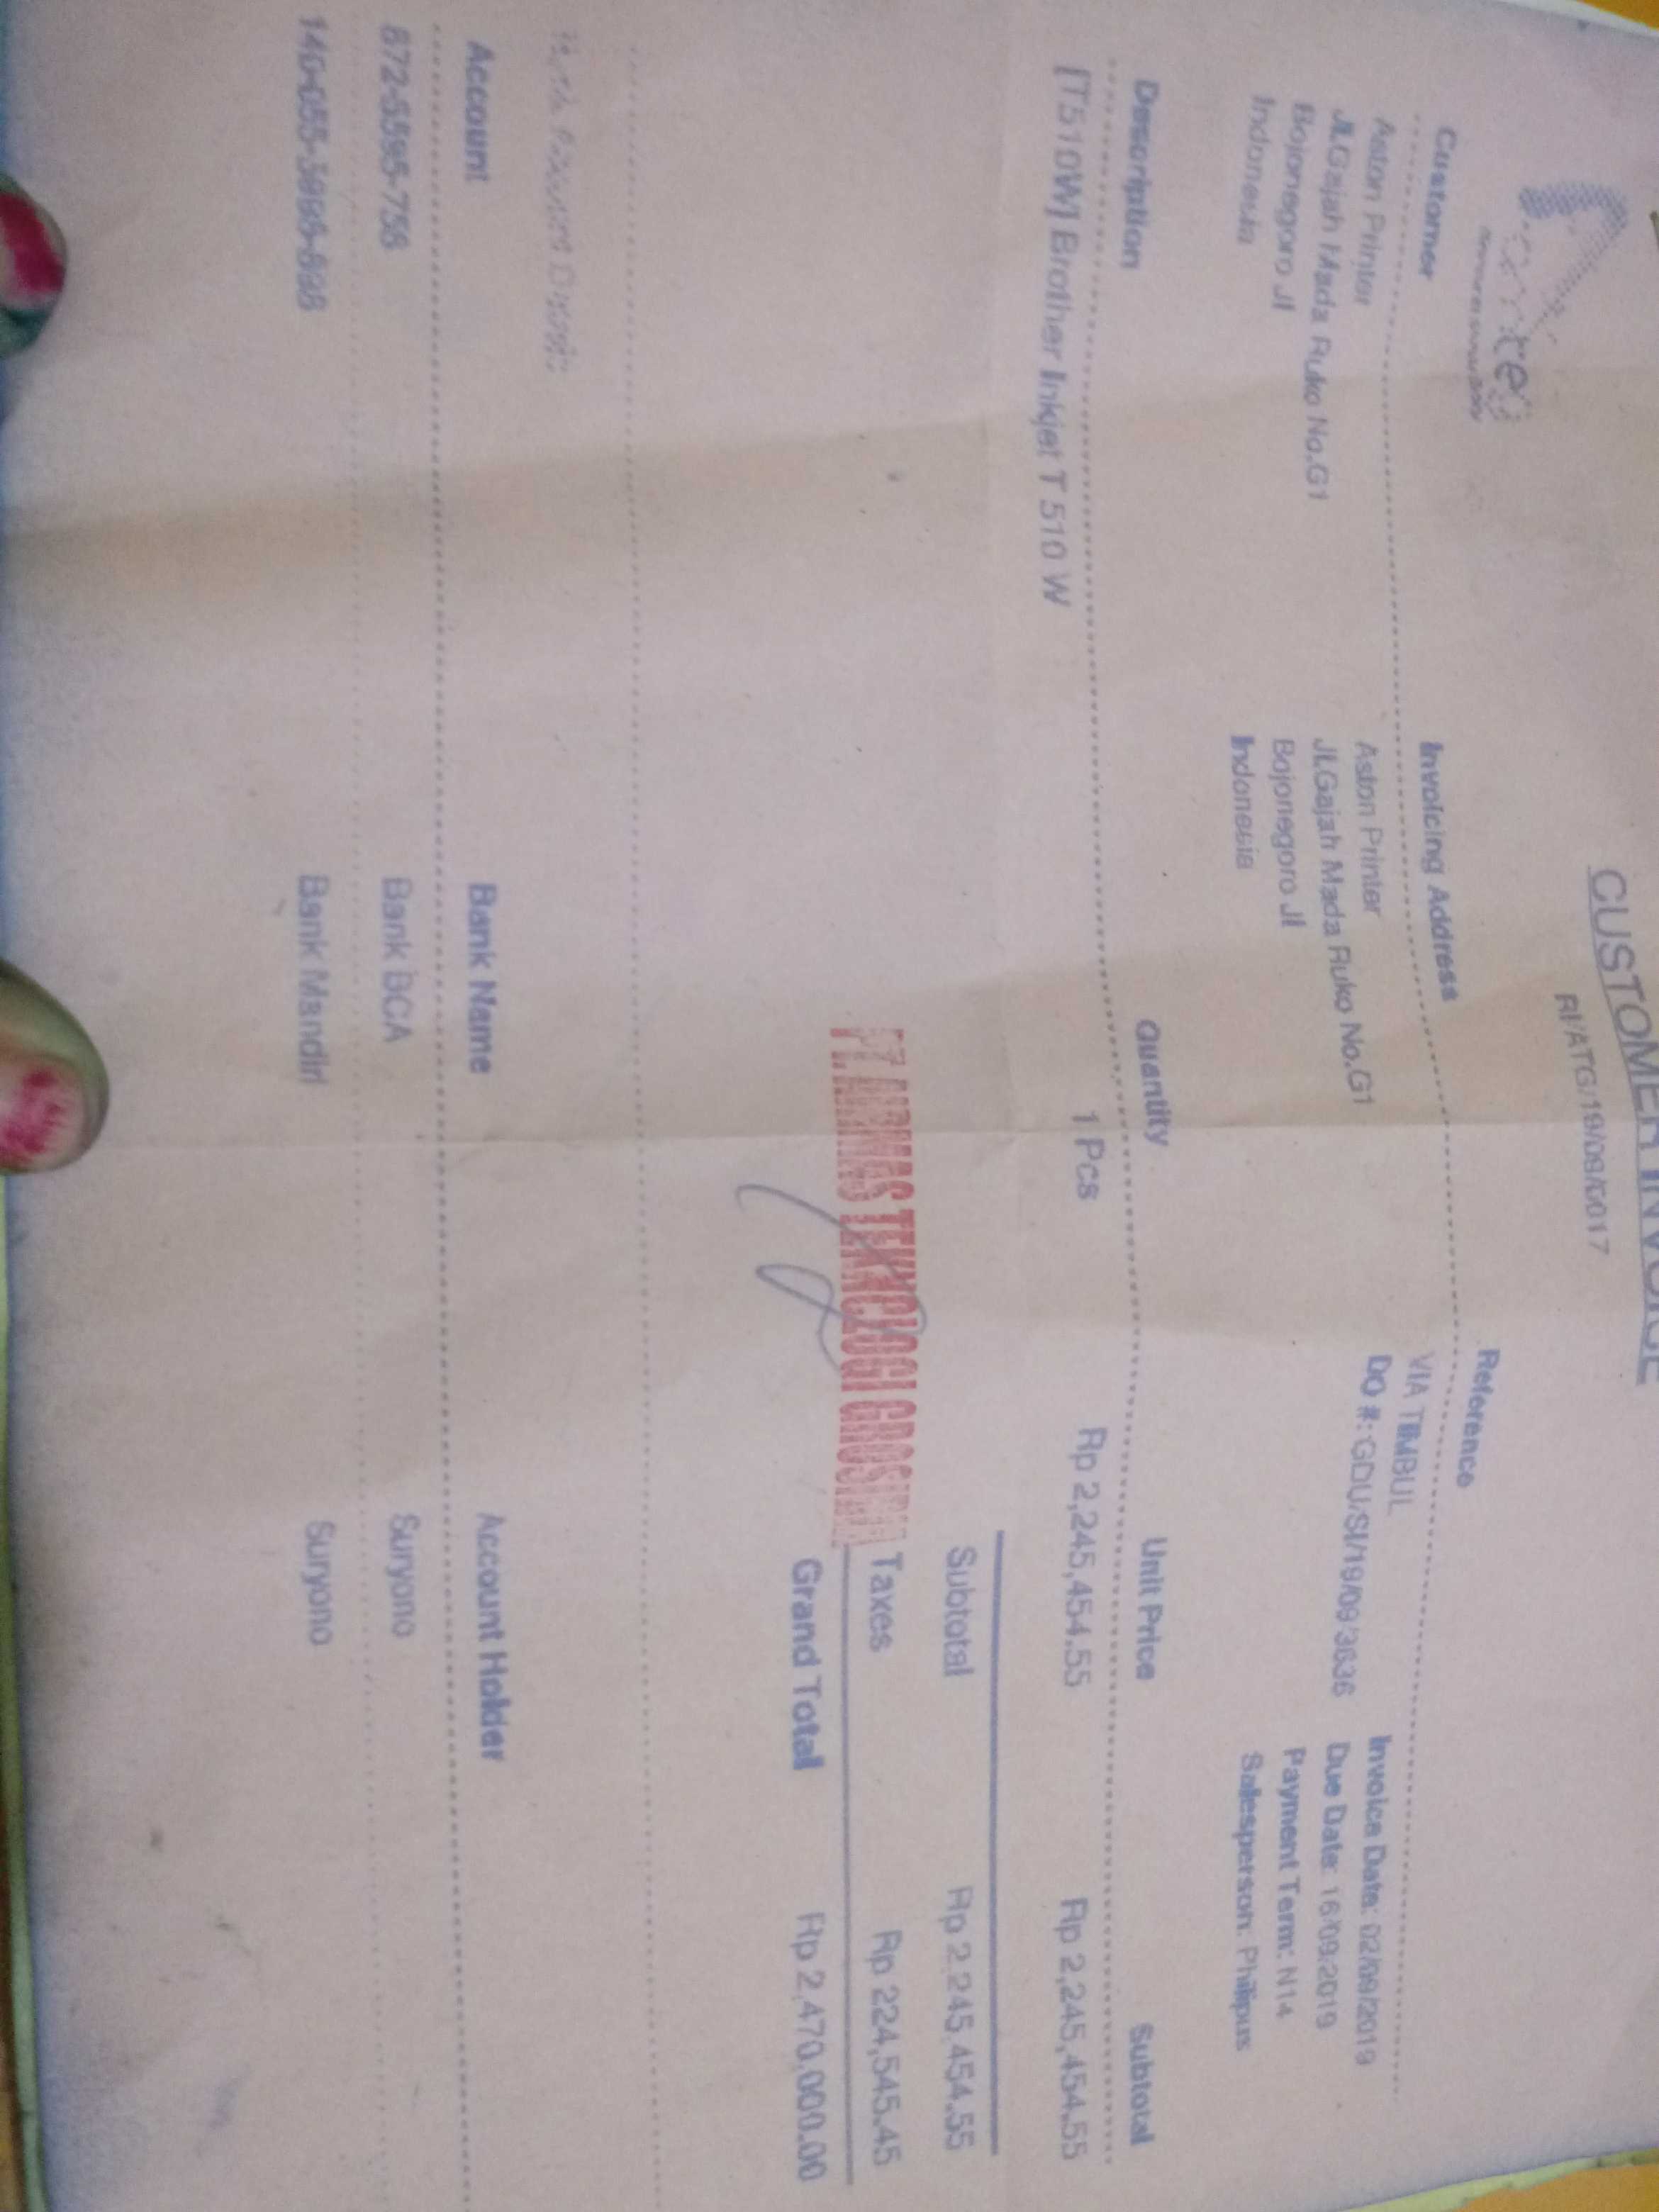 CUSTOMER INVOICE
RI/ATG/19/09/0017
Customer
Aston Printer
Jl.Gajah Mada Ruko No.G1
Bojonegoro JI
Indonesia
Invoicing Address
Aston Printer
Jl.Gajah Mada Ruko No.G1
Bojonegoro JI
Indonesia
Reference
VIA TIMBUL
DO #: GDU/SI/19/09/3636
Invoice Date: 02/09/2019
Due Date: 16/09/2019
Payment Term: N14
Salesperson: Philipus
Description Quantity Unit Price Subtotal
[T510W] Brother Inkjet T 510 W 1 Pcs Rp 2,245,454.55 Rp 2,245,454.55
Subtotal Rp 2,245,454.55
Taxes Rp 224,545.45
Grand Total Rp 2,470,000.00
PT. AIRMAS TEKNOLOGI GROSINDO
Account Bank Name Account Holder
872-5595-758 Bank BCA Suryono
Bank Mandiri Suryono